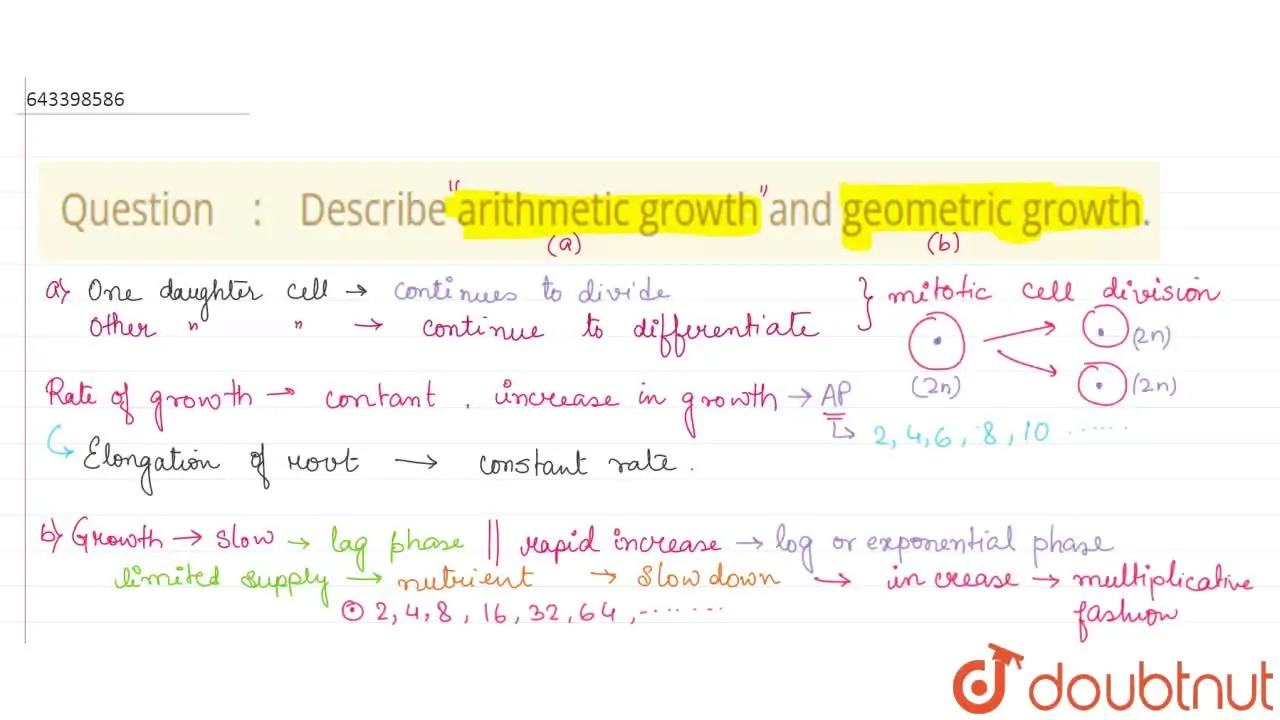 643398586
Question : Describe "arithmetic growth" and geometric growth.
(a) (b)
a) One daughter cell → continues to divide } mitotic cell division
Other " " → continue to differentiate
(2n) (2n) (2n)
Rate of growth → contant . increase in growth → AP
↳ 2, 4, 6, 8, 10 ......
↳ Elongation of root → constant rate.
b) Growth → slow → lag phase || rapid increase → log or exponential phase
limited supply → nutrient → slow down → increase → multiplicative
fashion
2, 4, 8, 16, 32, 64, .......
doubtnut